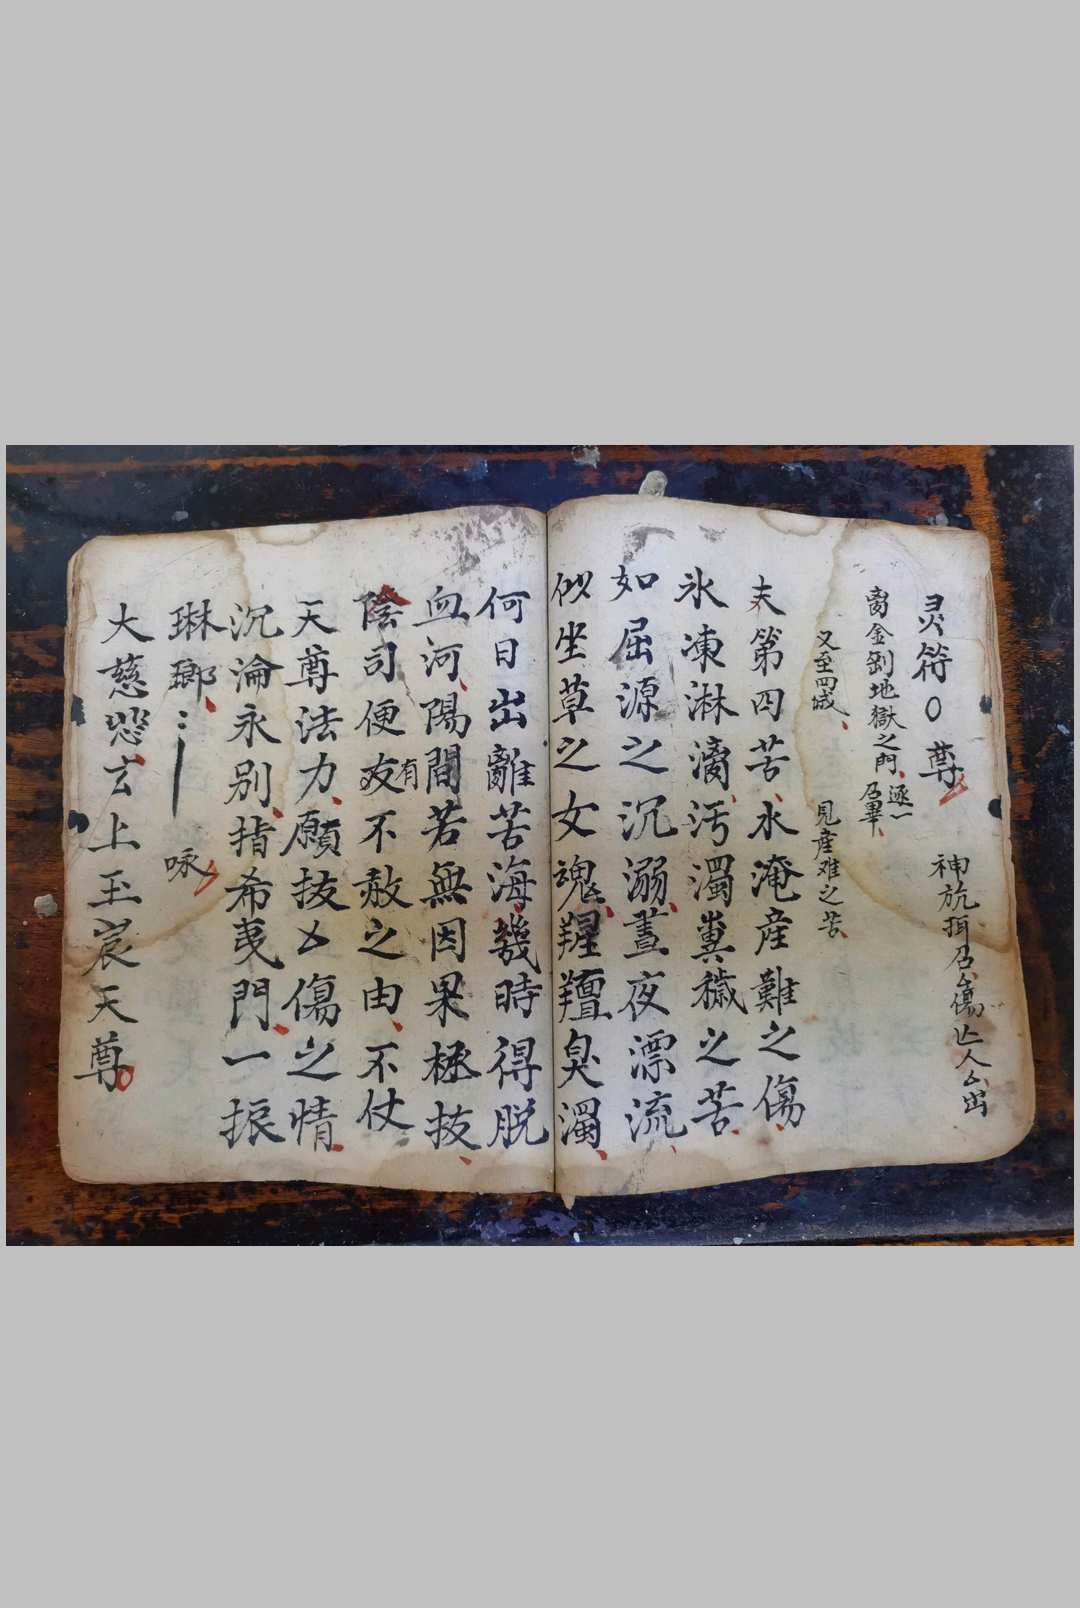 灵符〇尊
神旂招召傷亡人厶出
离金剛地獄之門逐一
召畢
又至四城 見産难之苦
夫第四苦水淹産難之傷
氷凍淋漓污濁糞穢之苦
如屈源之沉溺晝夜漂流
似坐草之女魂羶臭濁
何日出離苦海幾時得脱
血河陽間若無因果拯技
陰司便有不赦之由不仗
天尊法力願技傷之情
沉淪永別指希夷門一振
琳瑯 咏
大慈悲玄上玉宸天尊